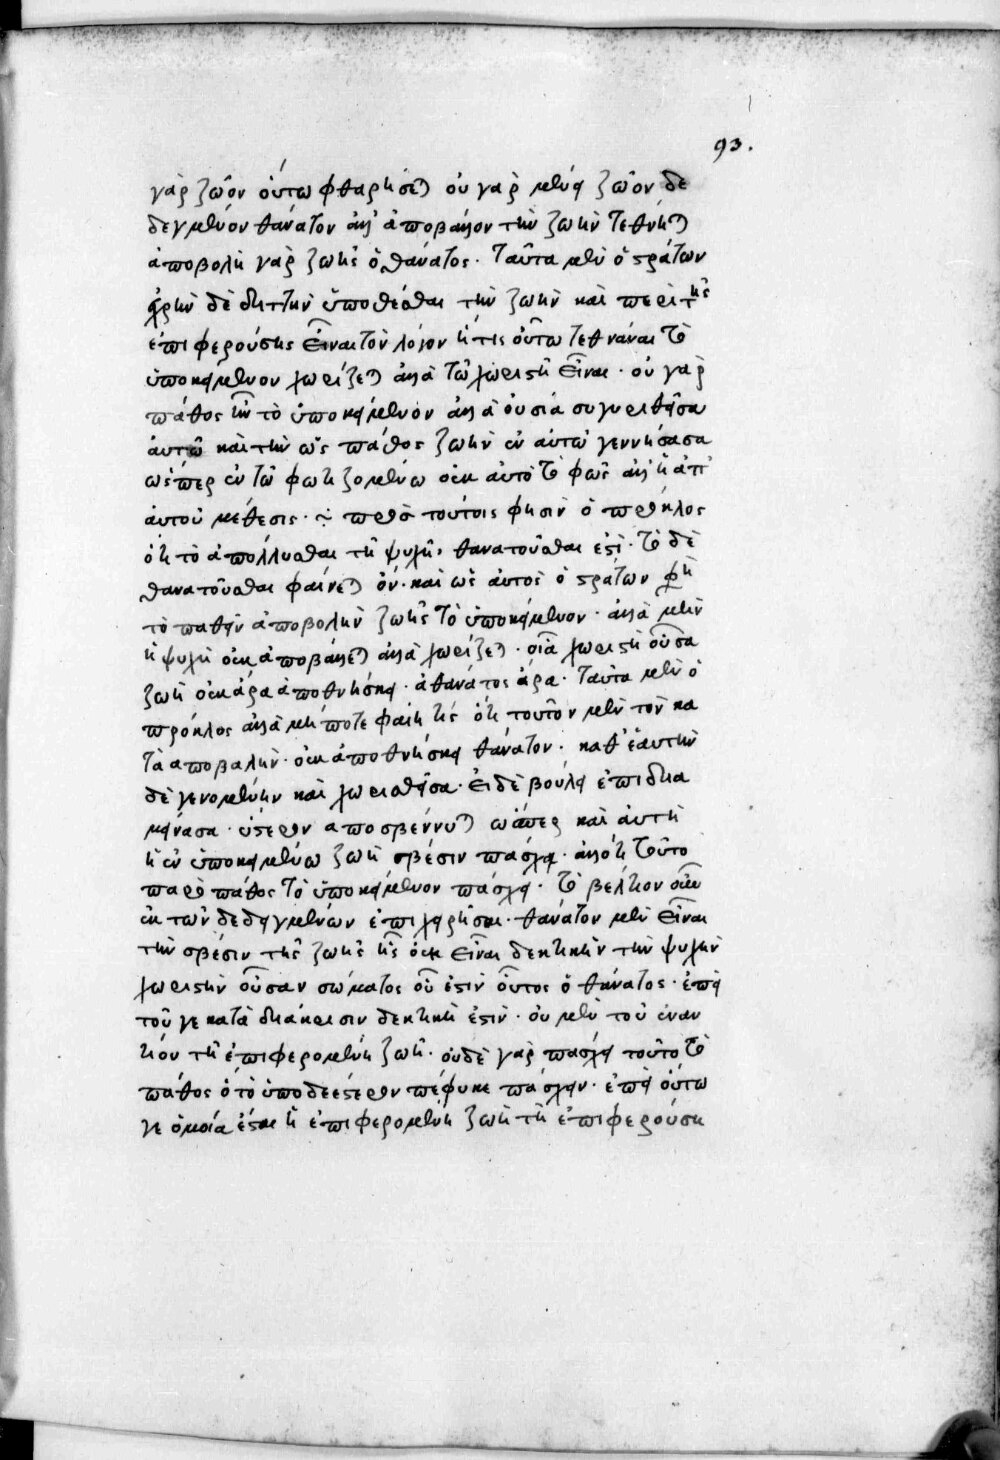 93.
γὰρ ζῶον οὕτω φθαρήσεται οὐ γὰρ μένει ζῶον δε
δεγμένον θάνατον ἀλλ' ἀποβάλλον τὴν ζωὴν τέθνηται
ἀποβολὴ γὰρ ζωῆς ὁ θάνατος· ταῦτα μὲν ὁ στράτων
χρὴν δὲ διττὴν ὑποθέσθαι τὴν ζωὴν καὶ περὶ τῆς
ἐπιφερούσης εἶναι τὸν λόγον ἥτις οὕτω τεθνάναι τὸ
ὑποκείμενον χωρίζεται ἀλλὰ τῶ χωριστὴ εἶναι· οὐ γὰρ
πάθος ἦν τὸ ὑποκείμενον ἀλλὰ οὐσία συγκριθεῖσα
αὐτῶ καὶ τὴν ὡς πάθος ζωὴν ἐν αὐτῶ γεννήσασα
ὥσπερ ἐν τῶ φωτιζομένω οὐκ αὐτὸ τὸ φῶς ἀλλ' ἡ ἀπ'
αὐτοῦ μέθεσις· πρὸς τούτοις φησὶν ὁ πρόκλος
ὅτι τὸ ἀπόλλυσθαι τῆ ψυχῆ, θανατοῦσθαι ἐστὶ· τὸ δὲ
θανατοῦσθαι φαίνεται ὂν· καὶ ὡς αὐτὸς ὁ στράτων φησὶ
τὸ παθεῖν ἀποβολὴν ζωῆς τὸ ὑποκείμενον· ἀλλὰ μὴν
ἡ ψυχὴ οὐκ ἀποβάλλεται ἀλλὰ χωρίζεται· οἷα χωριστὴ οὖσα
ζωὴ οὐκ ἄρα ἀποθνήσκει· ἀθάνατος ἄρα· ταῦτα μὲν ὁ
πρόκλος ἀλλὰ μήποτε φαίη τις ὅτι τοῦτον μὲν τὸν κα
τὰ ἀποβαλὴν· οὐκ ἀποθνήσκει θάνατον· καθ' ἑαυτὴν
δὲ γενομένην καὶ χωρισθεῖσα· εἰ δὲ βούλει ἐπιδια
μείνασα· ὕστερον ἀποσβέννυται ὥσπερ καὶ αὐτὴ
ἡ ἐν ὑποκειμένω ζωὴ σβέσιν πάσχει· ἀλλ' ὅτι τοῦτο
παρὸ πάθος τὸ ὑποκείμενον πάσχει· τὸ βέλτιον οὖν
ἐκ τῶν δεδειγμένων ἐπιχειρῆσαι· θάνατον μὲν εἶναι
τὴν σβέσιν τῆς ζωῆς ἧς οὐκ εἶναι δεκτικὴν τὴν ψυχὴν
χωριστὴν οὖσαν σώματος οὗ ἐστὶν οὗτος ὁ θάνατος· ἐπεὶ
τοῦ γε κατὰ διάκρισιν δεκτικὴ ἐστὶν· οὐ μὲν τοῦ ἐναν
τίου τῆ ἐπιφερομένη ζωῆ· οὐδὲ γὰρ πάσχει τοῦτο τὸ
πάθος ὁ τὸ ὑποδεέστερον πέφυκε πάσχειν· ἐπεὶ οὕτω
γε ὁμοία ἔσται ἡ ἐπιφερομένη ζωὴ τῆ ἐπιφερούση